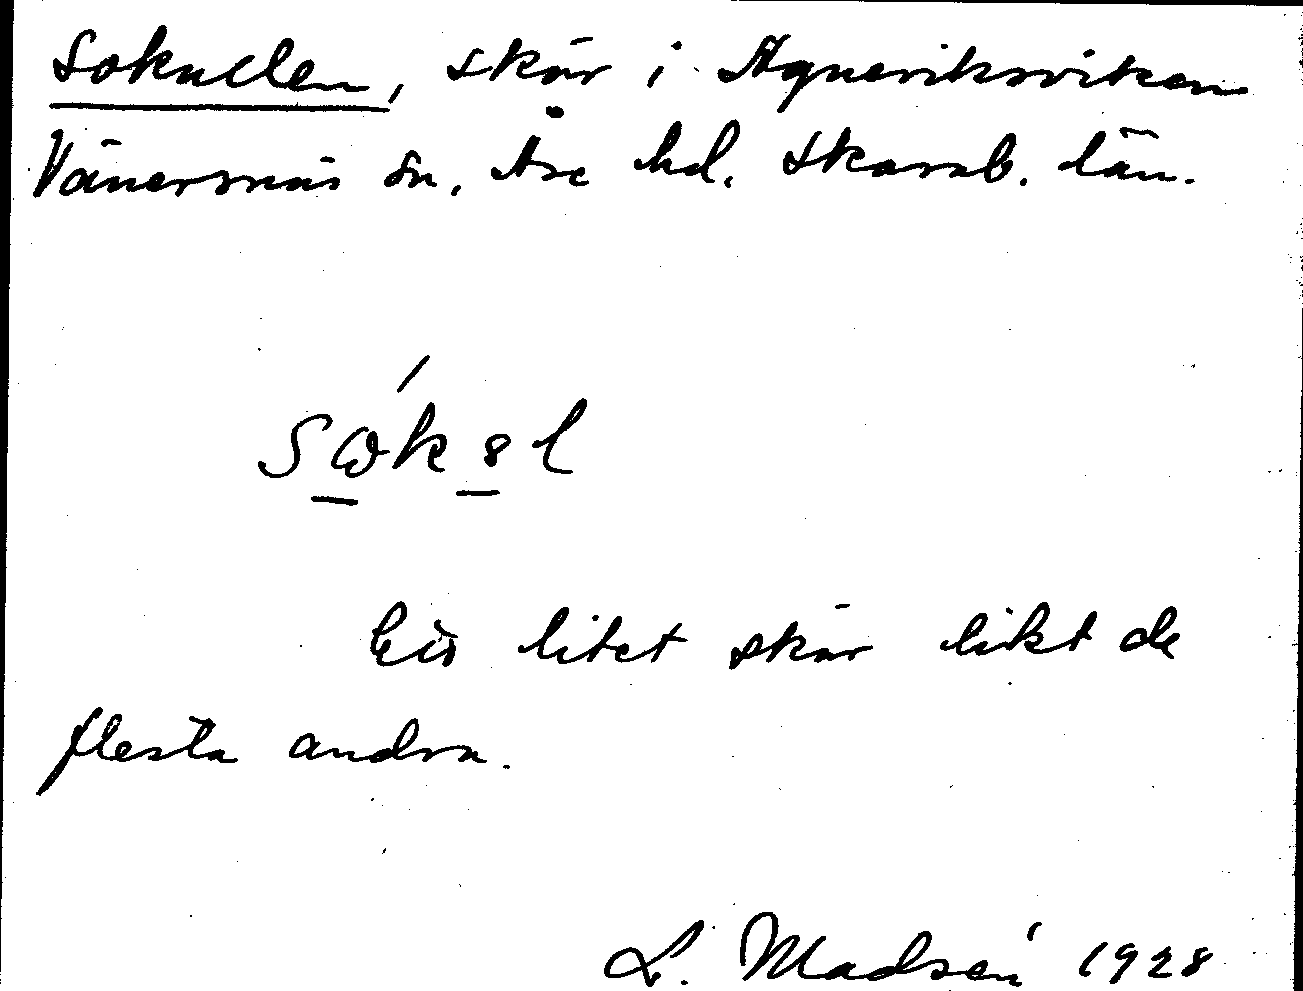 Sokullen, skär i Agneviksviken
Vänersnäs sn. Åse hd. Skarab. län.
sωkәl
Ett litet skär likt de
flesta andra.
L. Madsén 1928